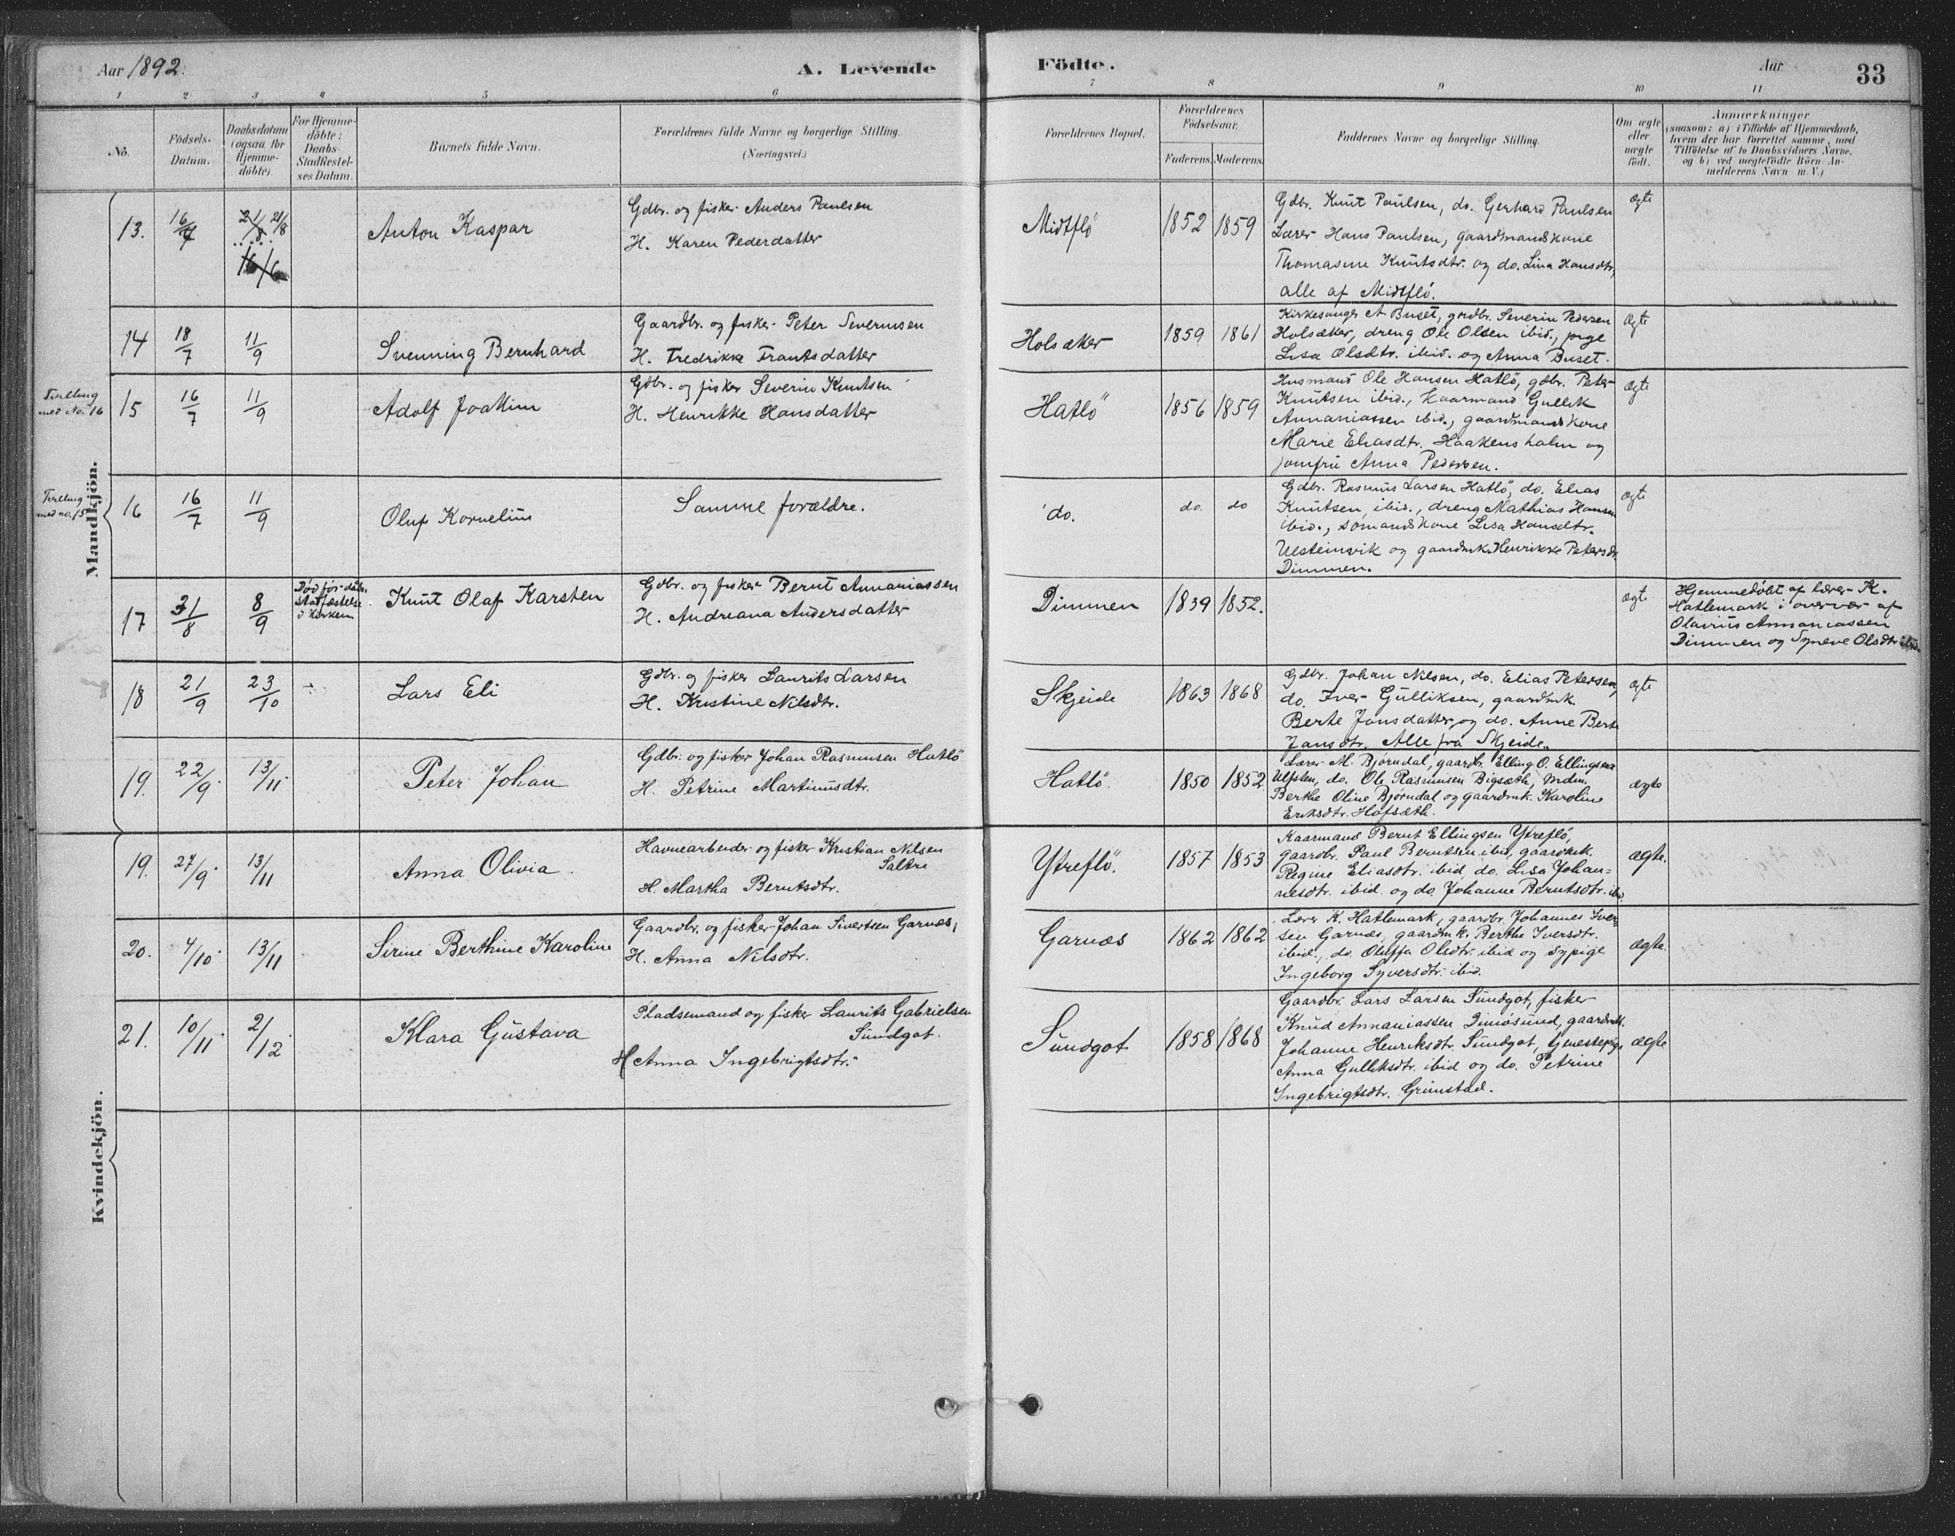 Aar 1892.
A. Levende
Födte.
Aar
33
1 2 3 4 5 6 7 8 9 10 11
No.
Födsels-
Datum.
Daabsdatum
(ogsaa for
Hjemme-
döbte).
For Hjemme-
döbte:
Daabs-
Stadfæstel-
ses Datum.
Barnets fulde Navn.
Forældrenes fulde Navne og borgerlige Stilling.
(Næringsvei.)
Forældrenes Bopæl.
Forældrenes
Födselsaar.
Faderens.
Moderens.
Faddernes Navne og borgerlige Stilling.
Om ægte
eller
uægte
födt.
Anmærkninger
(saasom: a) i Tilfælde af Hjemmedaab,
hvem der har forrettet samme, med
Tilföielse af to Daabsvidners Navne,
og b) ved uægtefödte Börn An-
melderens Navn m. V.)
Mandkjön.
13.
16/7
21/8
16/6
Anton Kaspar
Gdbr. og fisker Anders Paulsen
H. Karen Pederdatter
Midtflö
1852
1859
Gdbr. Knut Paulsen, do. Gerhard Paulsen
Lærer Hans Paulsen, gaardmandskone
Thomasine Knutsdtr. og do. Lina Hansdtr,
alle af Midtflö.
ægte
14
18/7
11/9
Svenning Bernhard
Gaardbr. og fisker Peter Severinsen
H. Fredrikke Frantsdatter
Holsæker
1859
1861
Kirkesanger A. Buset, grdbr. Severin Pedersen
Holsæker, dreng Ole Olsen ibid., pige
Lisa Olsdtr. ibid. og Anna Buset.
Ægte
Tvilling
med No. 16
15
16/7
11/9
Adolf Joakim
Gdbr. og fisker Severin Knutsen
H. Henrikke Hansdatter
Hatlö
1856
1859
Husmand Ole Hansen Hatlö, gdbr. Peter
Knutsen ibid., Kaarmand Gullik
Annaniassen ibid., gaardmandskone
Marie Eliasdtr. Haakensholm og
jomfru Anna Pedersen.
Ægte
Tvilling
med no. 15
16
16/7
11/9
Oluf Kornelius
Samme forældre.
do.
do.
do
Gdbr. Rasmus Larsen Hatlö, do. Elias
Knutsen, ibid., dreng Mathias Hansen
ibid., sömandskone Lisa Hansdtr.
Ulsteinvik og gaardmk. Henrikke Petersdr.
Dimmen.
Ægte
17
31/8
8/9
Död för daabs
stadfæstelse
i kirken
Knut Olaf Karsten
Gdbr. og fisker Bernt Annaniassen
H. Andreana Andersdatter
Dimmen
1839
1852.
ægte
Hjemmedöbt af lærer K.
Hatlemark i overvær af
Olavius Annaniassen
Dimmen og Synève Olsdtr ibid.
18
21/9
23/10
Lars Eli
Gdbr. og fisker Laurits Larsen
H. Kristine Nilsdtr.
Skjeide
1863
1868
Gdbr. Johan Nilsen, do. Elias Petersen,
do. Iver Gulliksen, gaardmk.
Berte Jonsdatter, og do. Anne Berte
Jansdtr. Alle fra Skjeide.
ægte
19.
22/9
13/11
Peter Johan
Gdbr. og fisker Johan Rasmusen Hatlö
H. Petrine Martinusdtr.
Hatlö.
1850
1852
Lærer M. Bjørndal, gaardbr. Elling O. Ellingsen
Ulsten, do. Ole Rasmusen Bigsæth, mdm.
Berthe Oline Bjørndal og gaardmk. Karoline
Eriksdtr. Hofsæth.
ægte
Kvindekjön.
19.
27/9
13/11
Anna Olivia.
Havnearbeider og fisker Kristian Nilsen
Saltre
H. Martha Berntsdtr.
Ytreflö.
1857
1853
Kaarmand Bernt Ellingsen Ytreflö,
gaardbr. Paul Berntsen ibid, gaardmk.
Regine Eliasdtr. ibid do. Lisa Johan=
nesdtr. ibid. og do. Johanne Berntsdtr. ibid
ægte.
20.
4/10
13/11
Sirine Berthine Karoline
Gaardbr. og fisker Johan Sivertsen Garnæs,
H. Anna Nilsdtr.
Garnæs
1862
1862
Lærer K. Hatlemark, gaardbr. Johannes Iver-
sen Garnæs, gaardmk. Berthe Iversdtr.
ibid., do. Oluffa Olsdtr. ibid og sypige
Ingeborg Syversdtr. ibid.
ægte.
21.
10/11
2/12
Klara Gustava
Pladsemand og fisker Laurits Gabrielsen
Sundgot.
H Anna Ingebrigtsdtr.
Sundgot
1858
1868
Gaardbr. Lars Larsen Sundgot, fisker
Knud Annaniassen Dimösund, gaardmk.
Johanne Henriksdtr. Sundgot, tjenestepige
Anna Gulliksdtr. ibid og do. Petrine
Ingebrigtsdtr. Grimstad.
ægte